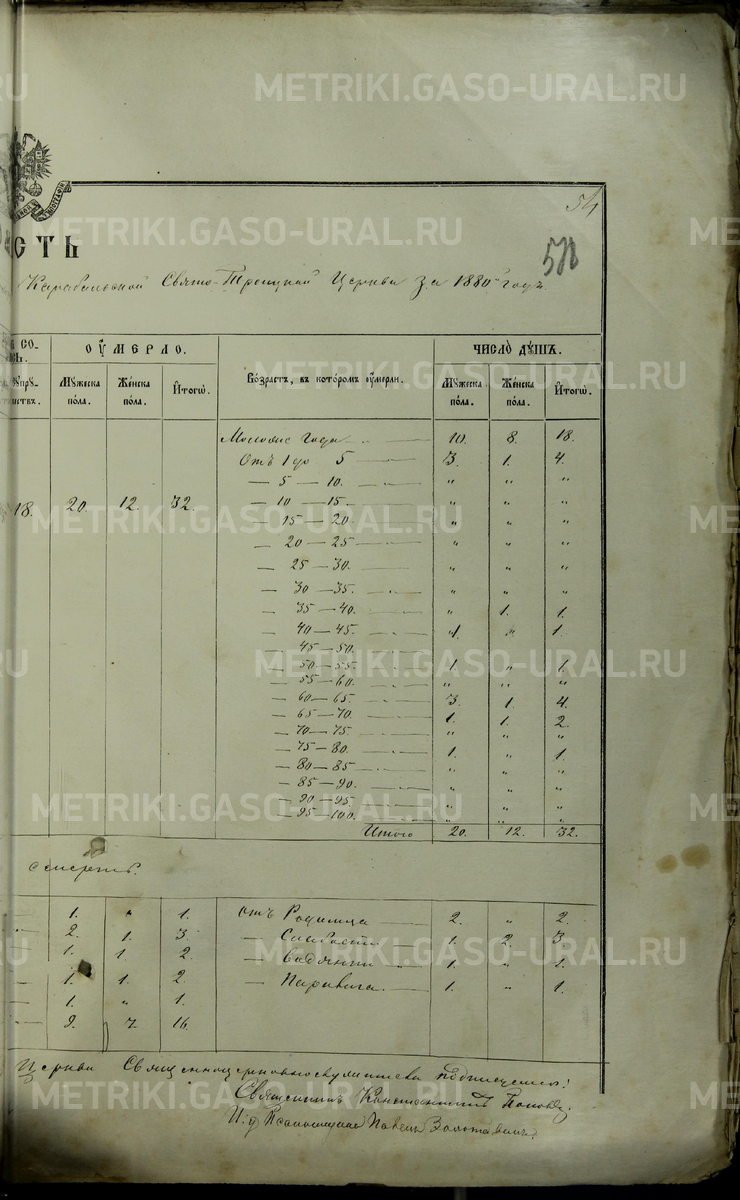 METRIKI.GASO-URAL.RU
54
СТЬ
Карабольской Свято-Троицкой Церкви за 1880 годъ.
ОУМЕРЛО. ЧИСЛО ДУШЪ.
Мужеска пола. Женска пола. Итого. Возрастъ, въ которомъ оумерли. Мужеска пола. Женска пола. Итого.
Моложе года 10. 8. 18.
Отъ 1 до 5 3. 1. 4.
— 5 — 10. " " "
18. 20. 12. 32. — 10 — 15. " " "
— 15 — 20. " " "
— 20 — 25 " " "
— 25 — 30. " " "
— 30 — 35. " " "
— 35 — 40. " 1. 1.
— 40 — 45. 1. " 1.
— 45 — 50.
— 50 — 55. 1. " 1.
— 55 — 60. " " "
— 60 — 65. 3. 1. 4.
— 65 — 70. 1. 1. 2.
— 70 — 75 " " "
— 75 — 80. 1. " 1.
— 80 — 85 " " "
— 85 — 90. " " "
— 90 — 95 " " "
— 95 — 100. " " "
Итого 20. 12. 32.
смерть.
1. " 1. отъ Родимца 2. " 2.
2. 1. 3. — Слабости 1. 2. 3.
1. 1. 2. — Водянки 1. " 1.
1. 1. 2. — 1. " 1.
1. " 1.
9. 7. 16.
Церкви Священноцерковнослужители подписуемся:
Священникъ Константинъ Поповъ.
И. д. Псаломщика Павелъ